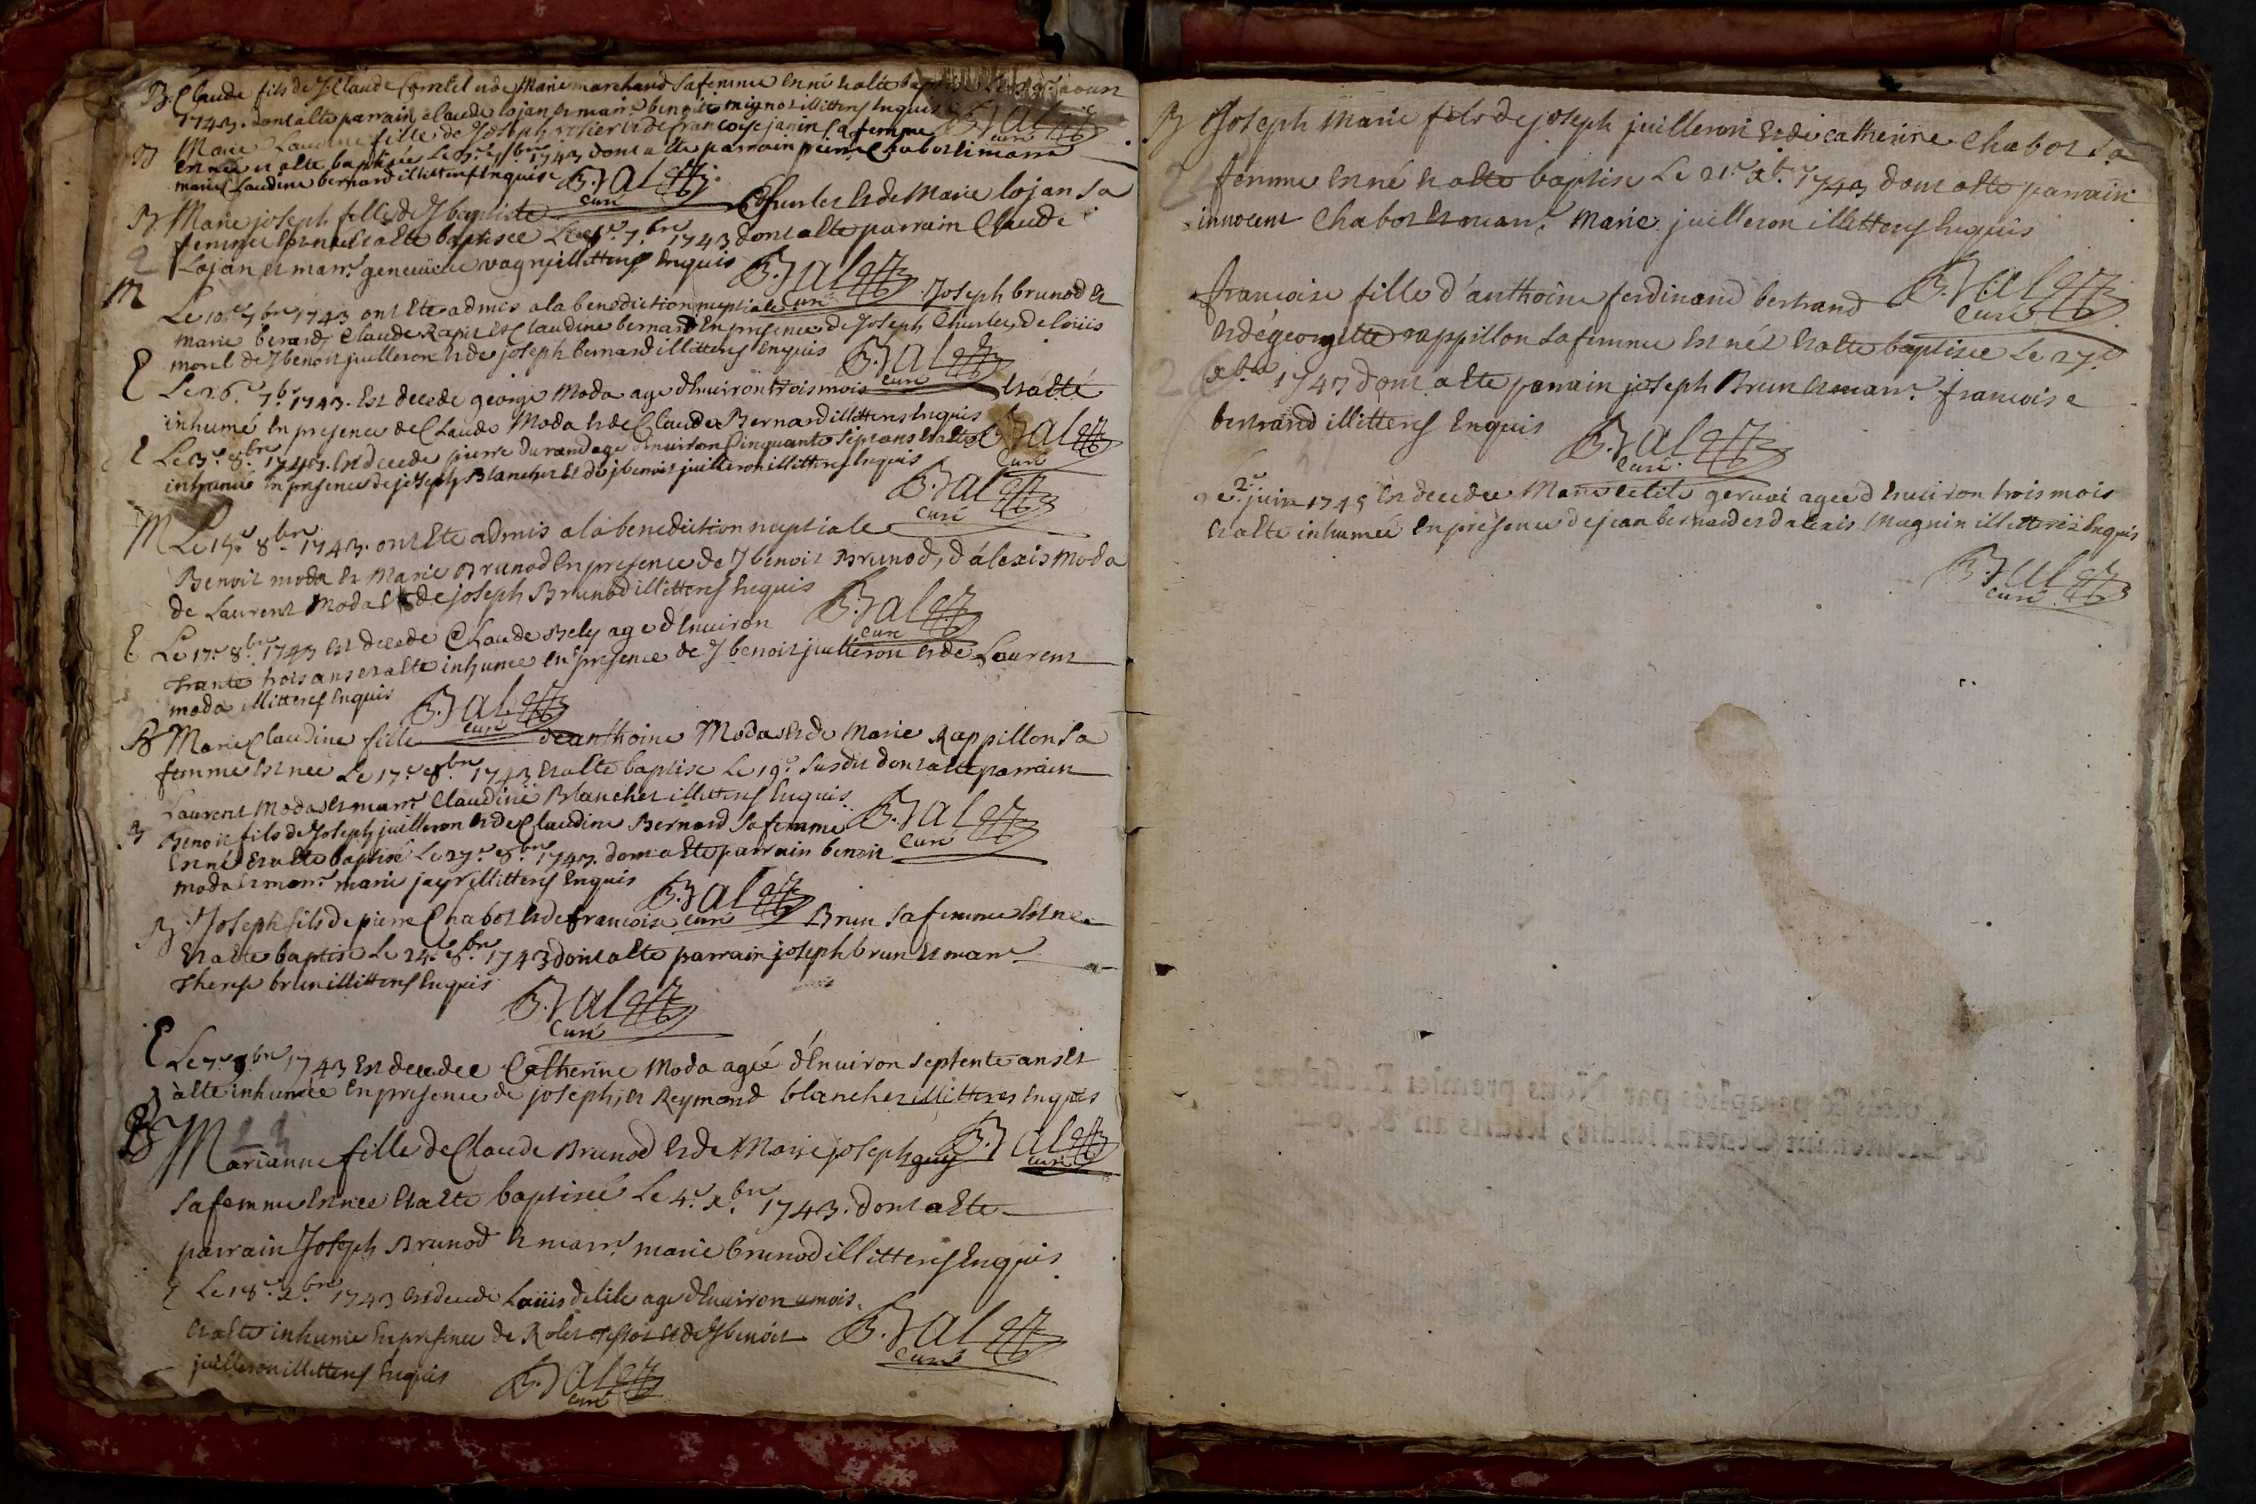 B. Claude fils de J Claude et de Marie marchand sa femme est né et a été
1743. dont a été parrain claude lojan et marr.e benoite mignot illitterés Enquis
B. Bal curé
B Marie Claudine fille de Joseph et de francoise janin sa femme
est née et a été baptisée Le 7.bre 1743 dont a été parrain pierre Chabot et marr.e
marie Claudine bernard illitterés Enquis B. Bal curé
B Marie joseph fille de J baptiste Charles et de Marie lojan sa
femme est née et a été baptisée Le 7.bre 1743 dont a été parrain Claude
2 Lojan et marr.e genevieve illitterés Enquis B. Bal curé
M Le 10.e 7.bre 1743 ont été admis a la benediction nuptiale Joseph brunod et
marie berard, Claude Rapit et Claudine bernard En presence de Joseph Charles, de loüis
morel de J benoit juilleron et de joseph bernard illitterés Enquis B. Bal curé
E Le 26.e 7.br 1743. Est decedé george Moda agé d'Environ trois mois Et a été
inhumé En presence de Claude Moda et de Claude Bernard illitterés Enquis B. Bal curé
E Le 3.e 8.bre 1743. Est decedé pierre durand agé d'environ Cinquante sept ans et a été
inhumé En presence de joseph Blanchet et de j benoit juilleron illitterés Enquis B. Bal curé
M Le 15.e 8.bre 1743. ont Eté admis a la benediction nuptiale
Benoit moda et Marie Brunod En presence de J benoit Brunod, d'alexis Moda
de Laurent Moda et de joseph Brunod illitterés Enquis B. Bal curé
E Le 17.e 8.bre 1743 est decedé Claude Bely agé d'Environ
trante trois ans et a été inhumé En presence de J benoit juilleron et de Laurent
moda illitterés Enquis B. Bal curé
B Marie Claudine fille de anthoine Moda et de Marie Rappillon sa
femme est née Le 17.e 8.bre 1743 et a été baptisé Le 19.e susdit dont a été parrain
Laurent Moda et marr.e Claudine Blanchet illitterés Enquis B. Bal curé
B Benoit fils de Joseph juilleron et de Claudine Bernard sa femme
Est né et a été baptisé Le 27.e 8.bre 1743. dont a été parrain benoit
moda et marr.e marie illitterés Enquis B. Bal curé
B Joseph fils de pierre Chabot et de francoise Brun sa femme est né
et a été baptisé Le 24.e 8.bre 1743 dont a été parrain joseph brun et marr.e
Therese brun illitterés Enquis
B. Bal curé
E Le 7.e 9.bre 1743 est decedée Catherine Moda agée d'Environ septente ans et
a été inhumée En presence de joseph, et Reymond blanchet illitterés Enquis
B. Bal curé
B Marianne fille de Claude Brunod et de Marie joseph guy
sa femme est née et a été baptiseé Le 4.e x.bre 1743. dont a été
parrain Joseph Brunod et marr.e marie brunod illitterés Enquis
E Le 18.e x.bre 1743 est decedé Loüis delile agé d'Environ mois
et a été inhumé En presence de Rolet et de J benoit B. Bal curé
juilleron illitterés Enquis B. Bal curé
B Joseph Marie fils de joseph juilleron et de catherine Chabot sa
2 femme est né et a été baptisé Le 21.e x.bre 1743 dont a été parrain
innocent Chabot et marr.e Marie juilleron illitterés Enquis
B. Bal curé
francoise fille d'anthoine ferdinand bertrand
et de georgette rappillon sa femme est née et a été baptisée Le 27.e
2 x.bre 1743 dont a été parrain joseph Brun et marr.e francoise
bertrand illitterés Enquis B. Bal curé
Le 2.e juin 1745 est decedée Marie gervai agée d'Environ trois mois
et a été inhumée En presence de jean bernard et d'alexis Magnin illitterés Enquis
B. Bal curé